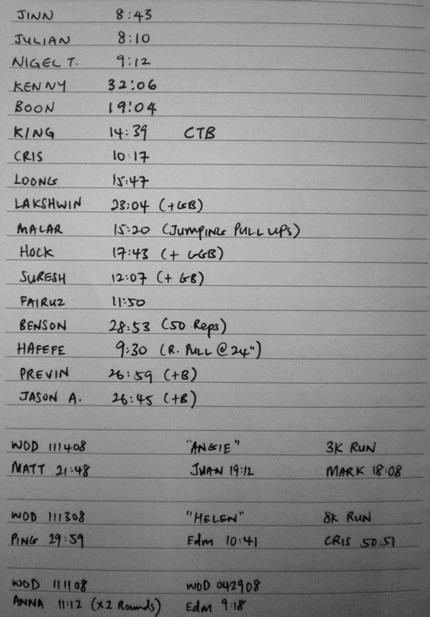 JINN 8:43
JULIAN 8:10
NIGEL T. 9:12
KENNY 32:06
BOON 19:04
KING 14:39 CTB
CRIS 10:17
LOONG 15:47
LAKSHWIN 23:04 (+GB)
MALAR 15:20 (JUMPING PULL UPS)
HOCK 17:43 (+ GGB)
SURESH 12:07 (+ GB)
FAIRUZ 11:50
BENSON 28:53 (50 Reps)
HAFEFE 9:30 (R. PULL @ 24")
PREVIN 26:59 (+B)
JASON A. 26:45 (+B)
WOD 111408 "ANGIE" 3K RUN
MATT 21:48 JUAN 19:12 MARK 18:08
WOD 111308 "HELEN" 8K RUN
PING 29:59 Edm 10:41 CRIS 50:51
WOD 111108 WOD 042908
ANNA 11:12 (x2 Rounds) Edm 9:18